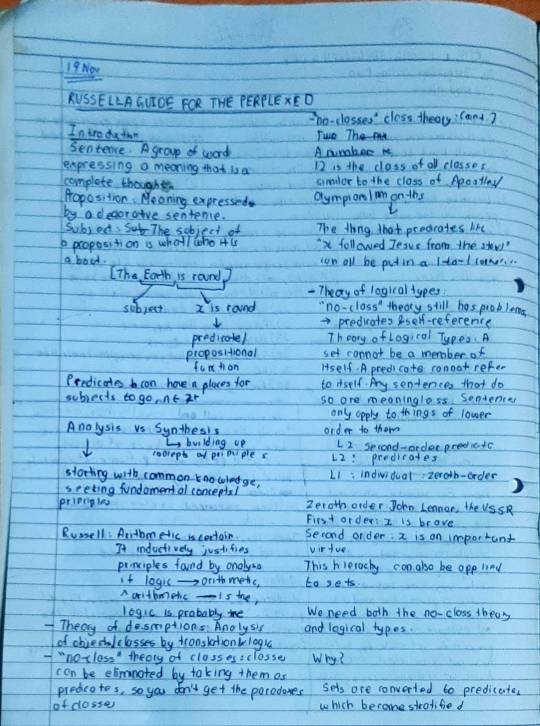 19 Nov
RUSSELL A GUIDE FOR THE PERPLEXED
Introduction
Sentence: A group of word
expressing a meaning that is a
complete thought
Proposition: Meaning expressed
by a declarative sentence.
Subject: Sub The subject of
a proposition is what/who it is
about.
[The Earth is round]
subject x is round
predicate/
propositional
function
Predicates can have n places for
subjects to go, n ∈ Z+
Analysis vs Synthesis
building up
concepts w/ principles
starting with common knowledge,
seeking fundamental concepts/
principles
Russell: Arithmetic is certain.
It inductively justifies
principles found by analysis
if logic → arithmetic,
^ arithmetic is true,
logic is probably true
- Theory of descriptions: Analysis
of objects/classes by translation & logic
- "no-class" theory of classes: classes
can be eliminated by taking them as
predicates, so you don't get the paradoxes
of classes
- "no-classes" class theory: (cont.)
Two The
A number is
12 is the class of all classes
similar to the class of Apostles/
Olympians/months
The thing that predicates like
"x followed Jesus from the start"
can all be put in a 1-to-1
- Theory of logical types:
"no-class" theory still has problems,
→ predicates & self-reference
Theory of Logical Types: A
set cannot be a member of
itself. A predicate cannot refer
to itself. Any sentences that do
so are meaningless. Sentences
only apply to things of lower
order to them
L2: Second-order predicate
L2: predicates
L1: individual: zeroth-order
Zeroth order John Lennon, the USSR
First order: x is brave
Second order: x is an important
virtue.
This hierachy can also be applied
to sets.
We need both the no-class theory
and logical types.
Why?
Sets are converted to predicates,
which become stratified